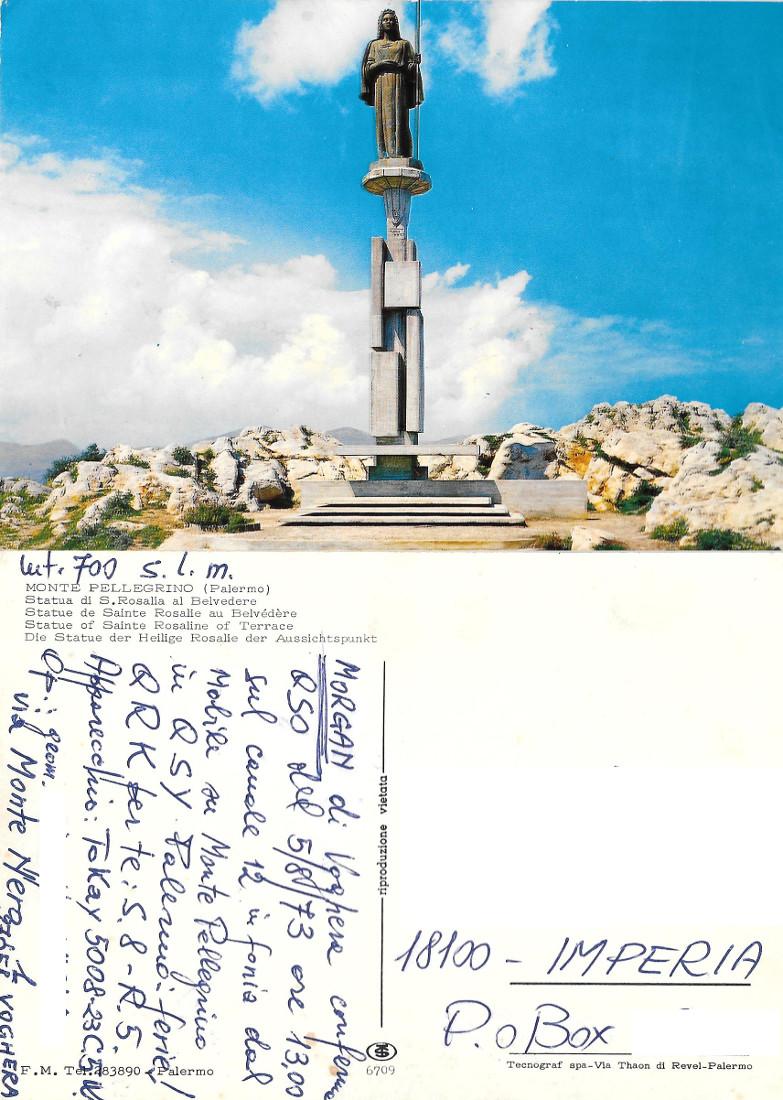 lmt. 700 s.l.m.
MONTE PELLEGRINO (Palermo)
Statua di S.Rosalia al Belvedere
Statue de Sainte Rosalie au Belvédère
Statue of Sainte Rosaline of Terrace
Die Statue der Heilige Rosalie der Aussichtspunkt
MORGAN di Voghera conferma
QSO del 5/8/73 ore 13,00
sul canale 12 in fonia dal
Mobile su Monte Pellegrino
in QSY Palermo: ferie!
QRK per te: S.8 - R.5
Apparecchio: ToKay 5008-23C.5W.
Op.: geom.
via Monte Nero
VOGHERA
riproduzione vietata
18100 - IMPERIA
P.o Box
F.M. Tel. 83890 - Palermo
6709
Tecnograf spa-Via Thaon di Revel-Palermo